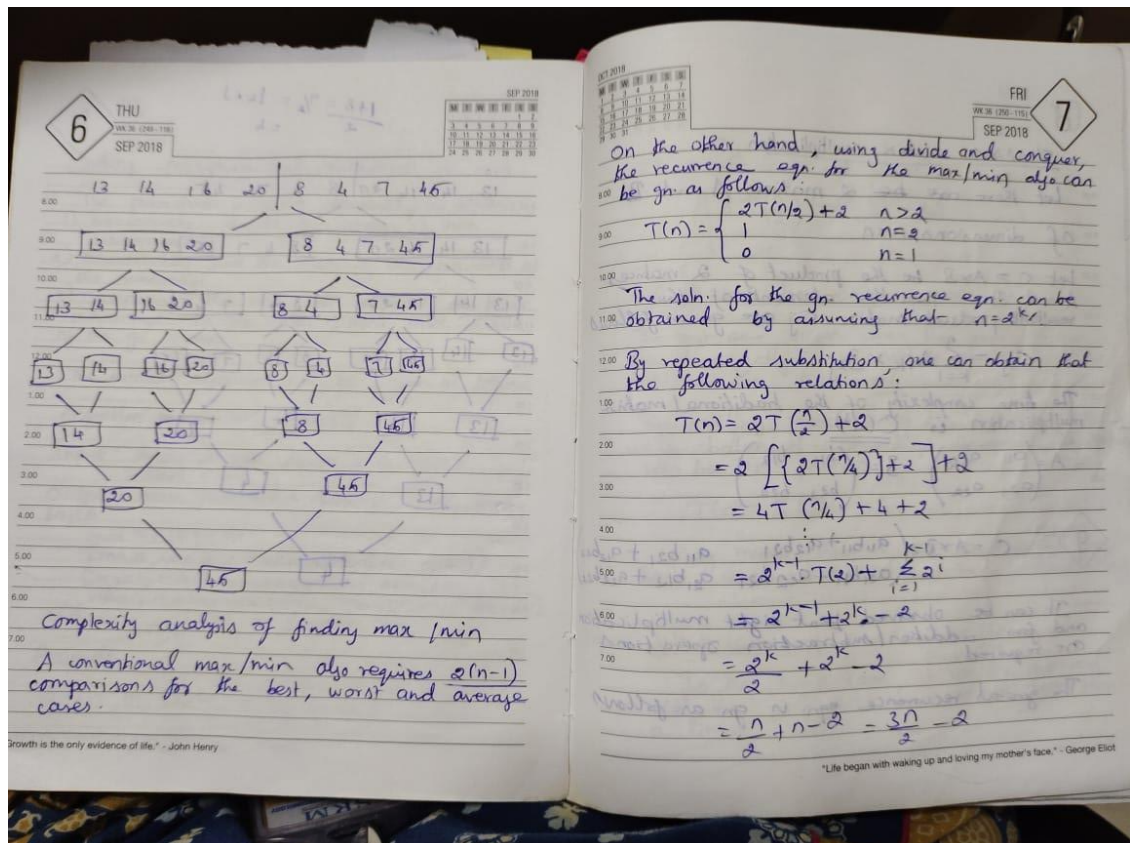 6
THU
WK 36 (249 - 116)
SEP 2018
SEP 2018
M T W T F S S
1 2
3 4 5 6 7 8 9
10 11 12 13 14 15 16
17 18 19 20 21 22 23
24 25 26 27 28 29 30
13 14 16 20 8 4 7 45
8.00
9.00
13 14 16 20 8 4 7 45
10.00
13 14 16 20 8 4 7 45
11.00
12.00
13 14 16 20 8 4 7 45
1.00
2.00
14 20 8 45
3.00
20 45
4.00
5.00
45
6.00
Complexity analysis of finding max/min
7.00
A conventional max/min algo requires 2(n-1)
comparisons for the best, worst and average
cases.
Growth is the only evidence of life." - John Henry
OCT 2018
M T W T F S S
1 2 3 4 5 6 7
8 9 10 11 12 13 14
15 16 17 18 19 20 21
22 23 24 25 26 27 28
29 30 31
FRI
WK 36 (250 - 115)
SEP 2018
7
On the other hand, using divide and conquer,
the recurrence eqn. for the max/min algo can
8.00
be gn. as follows:
2T(n/2)+2 n>2
9.00
T(n) = { 1 n=2
0 n=1
10.00
The soln. for the gn. recurrence eqn. can be
11.00
obtained by assuming that n=2ᵏ,
12.00
By repeated substitution, one can obtain that
the following relations:
1.00
T(n) = 2T(n/2)+2
2.00
= 2[{2T(n/4)}+2]+2
3.00
= 4T(n/4)+4+2
4.00
⋮
5.00
= 2ᵏ⁻¹. T(2) + Σ_{i=1}^{k-1} 2ⁱ
6.00
= 2ᵏ⁻¹+2ᵏ-2
7.00
= 2ᵏ/2 + 2ᵏ - 2
= n/2 + n - 2 = 3n/2 - 2
"Life began with waking up and loving my mother's face." - George Eliot